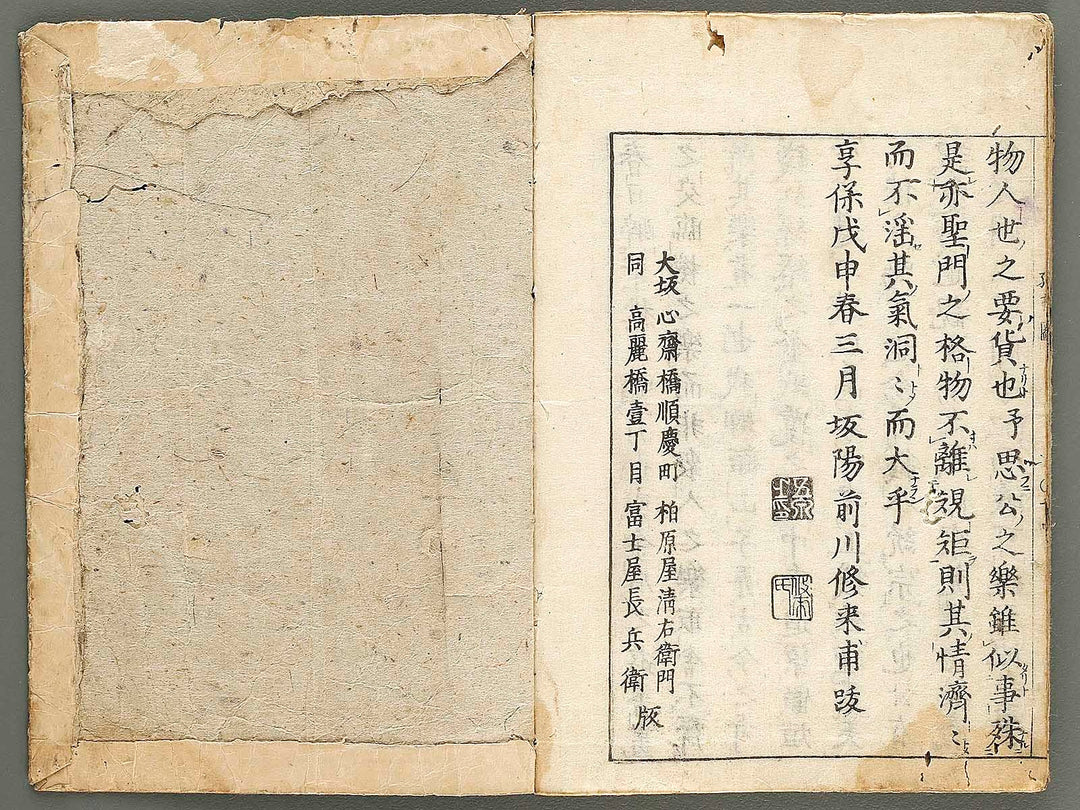 物人也之要貨也予思公之樂雖似事殊
是亦聖門之格物不離規矩則其情濟〻
而不滛其氣洞〻而大乎
享保戊申春三月坂陽前川修来甫跋
大坂心齋橋順慶町 柏原屋淸右衛門
同 高麗橋壹丁目 富士屋長兵衛 版